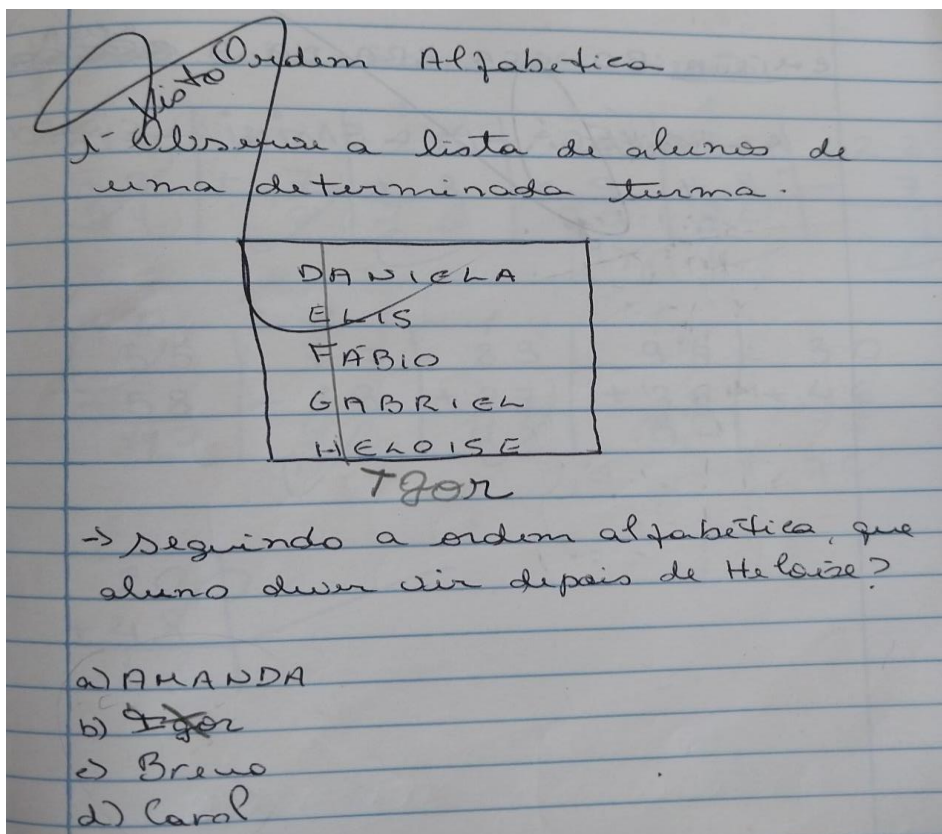 Visto
Ordem Alfabetica
1- Observe a lista de alunos de
uma determinada turma.
DANIELA
ELIS
FÁBIO
GABRIEL
HELOISE
Igor
-> Seguindo a ordem alfabética, que
aluno dever vir depois de Heloize?
a) AMANDA
b) Igor
c) Breno
d) Carol